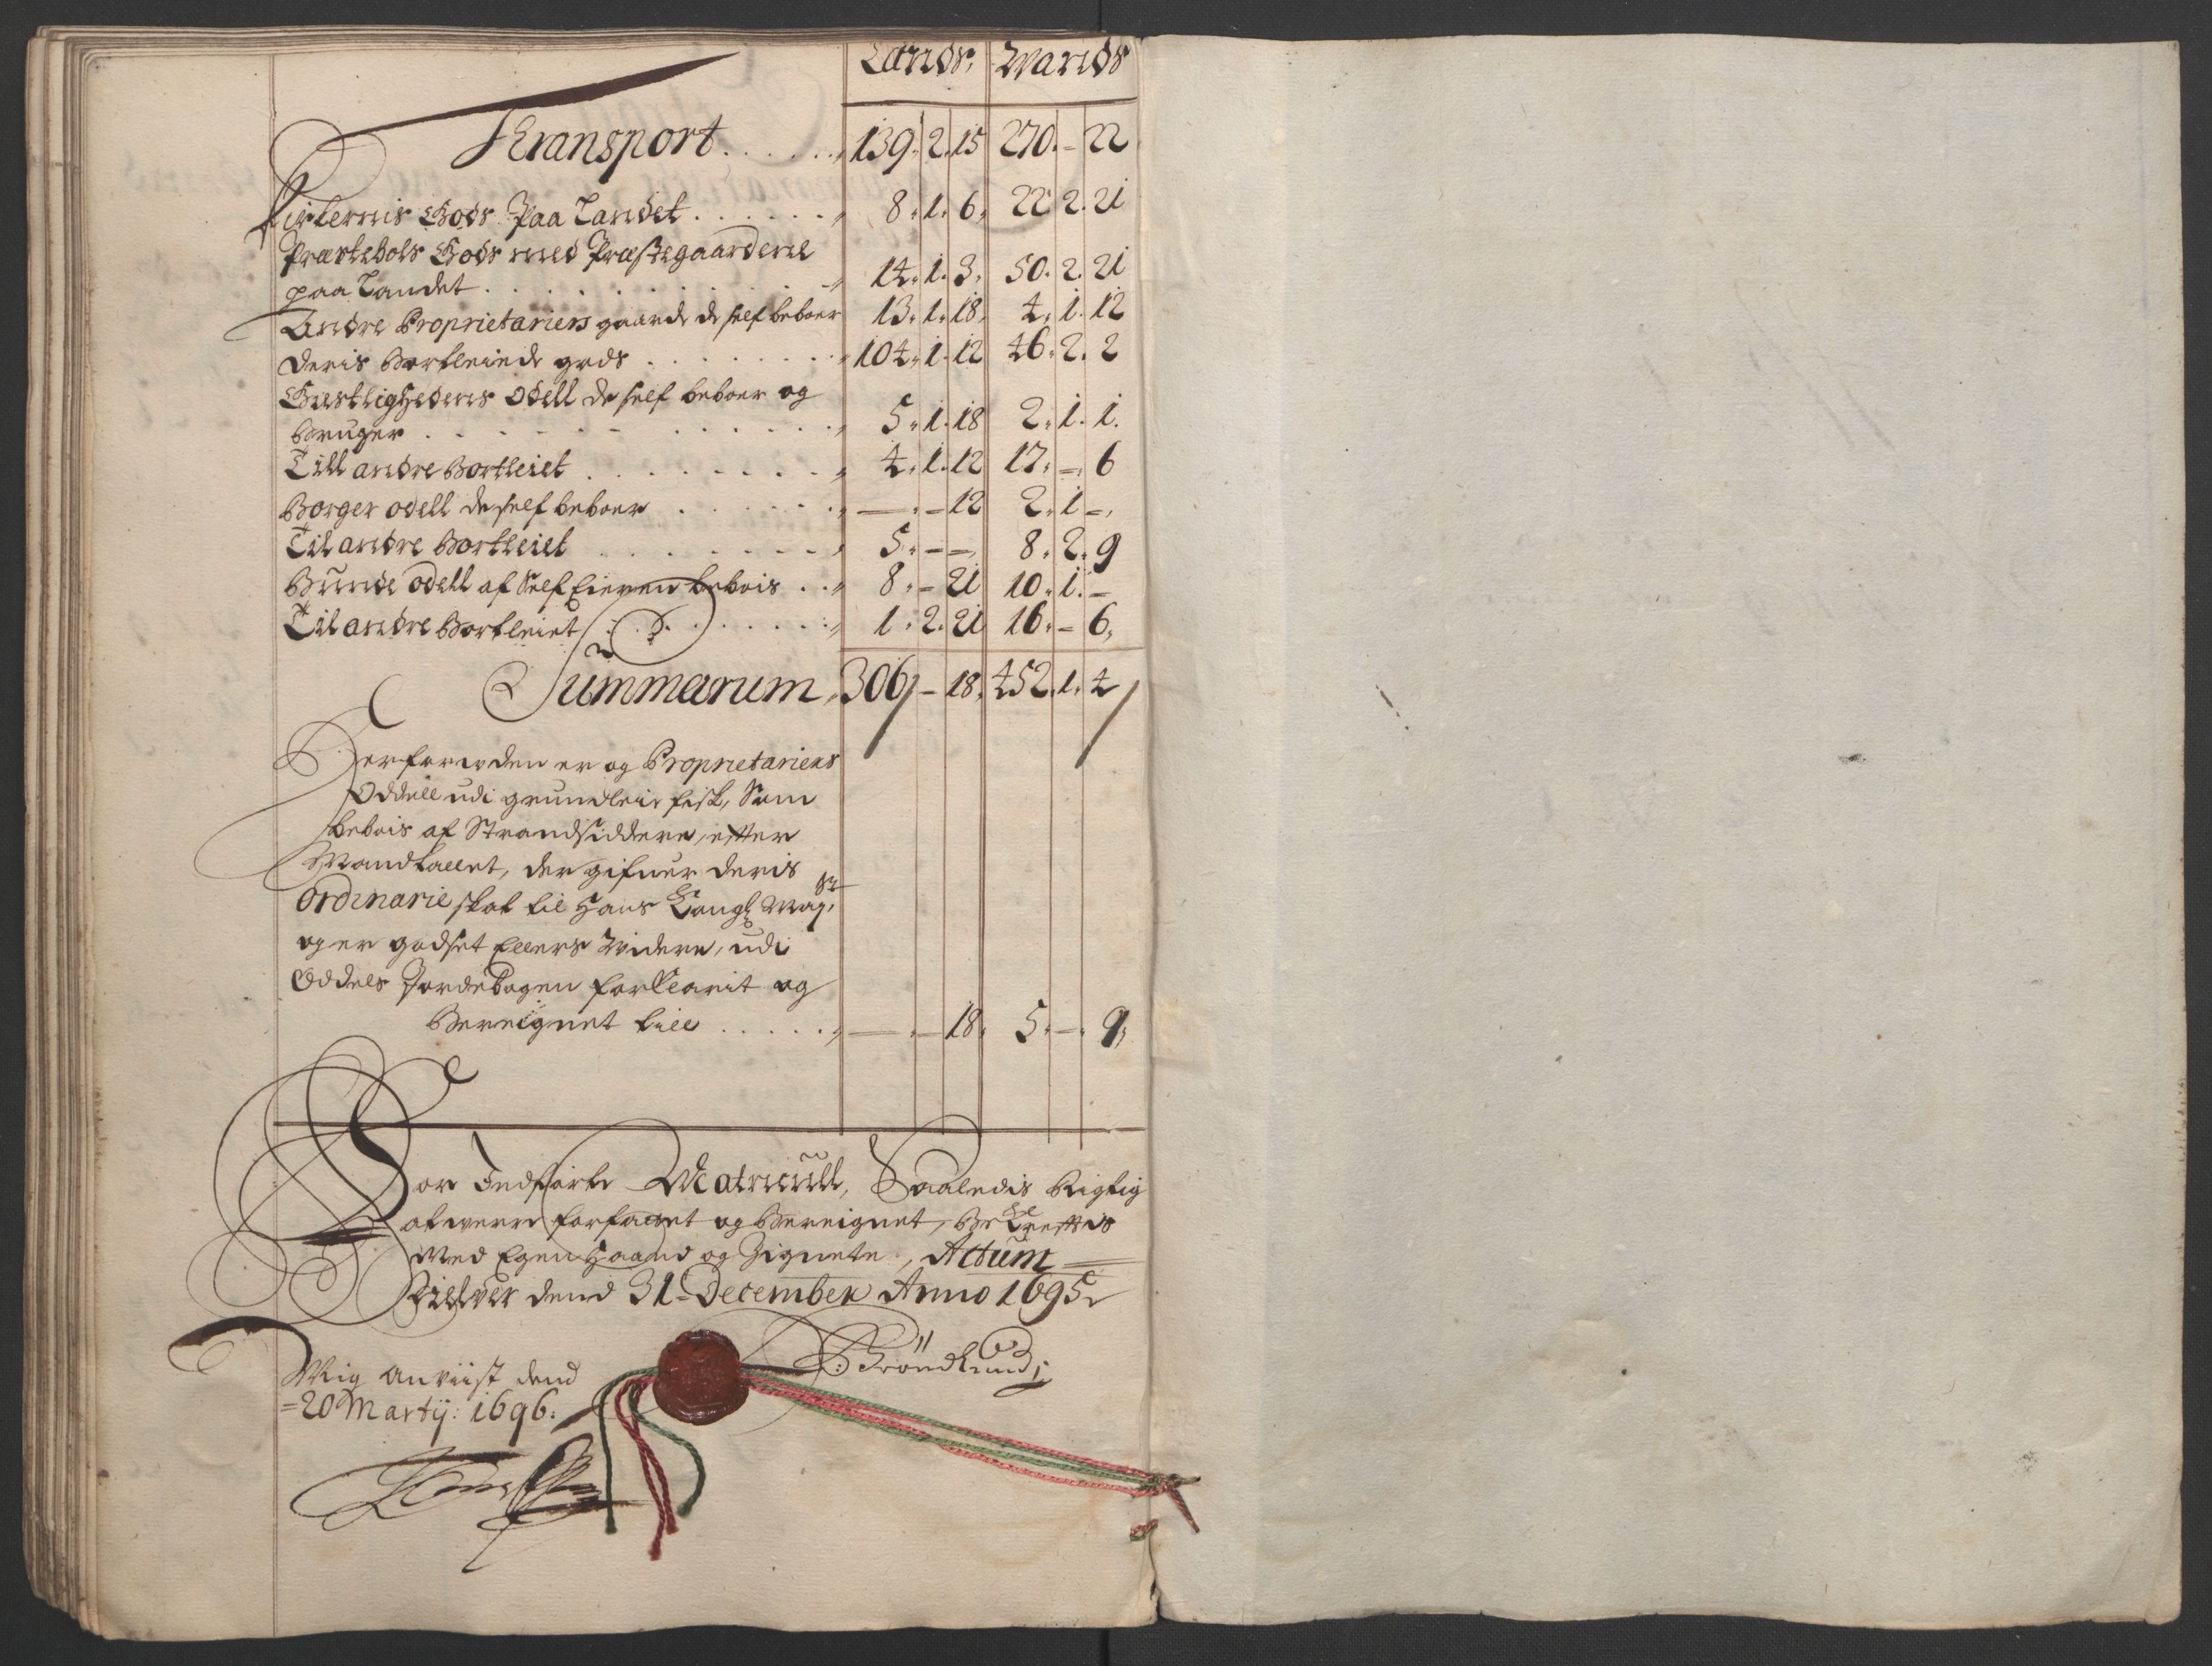 Lands, Wands
Transport . . . . . . 139. 2. 15 270. - 22
Kirkernis Gods Paa Landet . . . . . . 8. 1. 6. 22 2. 21
Præstebols Gods med Præstegaardene
paa Landet . . . . . . 14. 1. 3. 50. 2. 21
Andre Proprietariers gaarde de self beboer 13. 1. 18. 4. 1. 12
Deris Bortleiede gods . . . . . . 104. 1. 12 46. 2. 2
Geistlighedens Odell de self beboer og
Bruger . . . . . . 5. 1. 18 2. 1. 1.
Till andre Bortleiet . . . . . . 4. 1. 12 17. - 6
Borger odell de self beboer . . . . . . - - 12 2. 1 -
Til andre Bortleiet . . . . . . 5. - - 8. 2. 9
Bunde odell af Self Eieren bebois . . 8. - 21 10. 1. -
Til andre Bortleiet . . . . . . 1. 2. 21 16. - 6.
Summarum, 306 - 18. 452. 1. 4
Herforuden er og Proprietariers
Oddell udi grundleie fisk, Som
bebois af Strandsiddere, efter
Mandtallet, der gifuer deris
Ordinarie skat til Hans Kongl Mayst
og er godset Ellers Videre, udi
Oddels Jordebogen forklarit og
Bereignet till . . . . . - - 18. 5. - 9.
For Indførte Matricull, Saaledis Rigtig
at were forfattet og Bereignet, Bekrefftis
Med Egen Haand og Zignete, Actum
dend 31 December Anno 1695
Mig anviist dend
20 Martij: 1696.